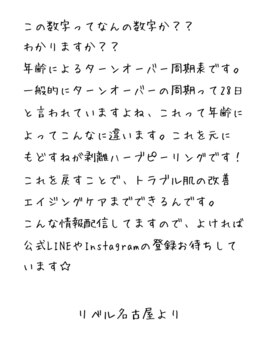 この数字ってなんの数字か??
わかりますか??
年齢によるターンオーバー周期表です。
一般的にターンオーバーの周期って28日
と言われていますよね、これって年齢に
よってこんなに違います。これを元に
もどすねが剥離ハーブピーリングです!
これを戻すことで、トラブル肌の改善
エイジングケアまでできるんです。
こんな情報配信してますので、よければ
公式LINEやInstagramの登録お待ちして
います☆
リベル名古屋より